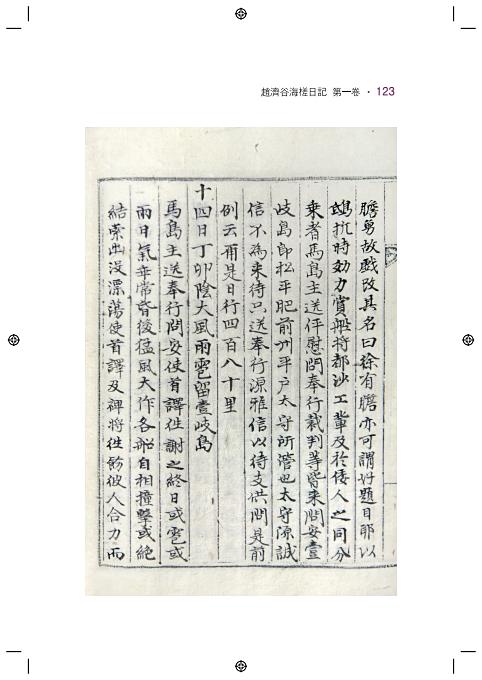 趙濟谷海槎日記 第一卷 · 123
膽勇故戲改其名曰徐有膽亦可謂好題目耶以
鴟抗時効力賞船將都沙工輩及於倭人之同分
乘者馬島主送伻慰問奉行裁判等皆來問安壹
岐島卽松平肥前州平戶太守所管也太守源誠
信不爲來待只送奉行源雅信以待支供問是前
例云爾是日行四百八十里
十四日丁卯陰大風雨雹留壹岐島
馬島主送奉行問安使首譯往謝之終日或雹或
雨日氣乖常昏後猛風大作各船自相撞擊或絶
結索出沒漂蕩使首譯及裨將往飭彼人合力而